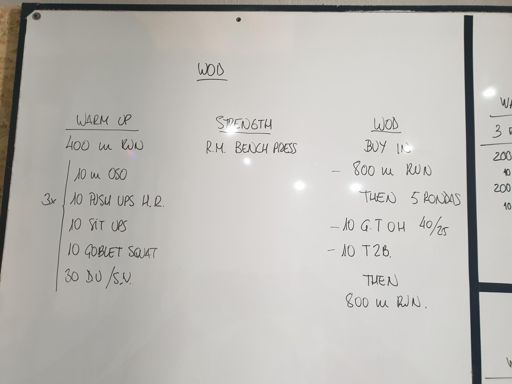 WOD
WARM UP
400 m RUN
3x
10 m OSO
10 PUSH UPS H.R.
10 SIT UPS
10 GOBLET SQUAT
30 DU/S.U.
STRENGTH
R.M. BENCH PRESS
WOD
BUY IN
- 800 m RUN
THEN 5 RONDAS
- 10 G.T OH 40/25
- 10 T2B.
THEN
800 m RUN.
3
200
10
200
10